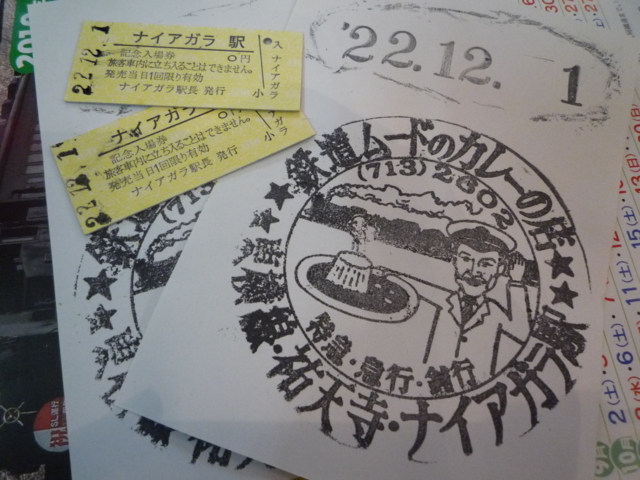 ナイアガラ 駅
記念入場券 0円
旅客車内に立ち入ることはできません。
発売当日1回限り有効
ナイアガラ駅長 発行
入 ナイアガラ 小
22.12.-1
ナイアガラ
記念入場券 0円
旅客車内に立ち入ることはできません。
発売当日1回限り有効
ナイアガラ駅長 発行
ガラ 小
22.12.-1
'22.12. 1
鉄道ムードのカレーの店
(713)2602
特急・急行・鈍行
東横線・祐天寺・ナイアガラ駅
(713)
鉄道
祐天
SL運行
2(土)
6(土)
11(土)
15(土)